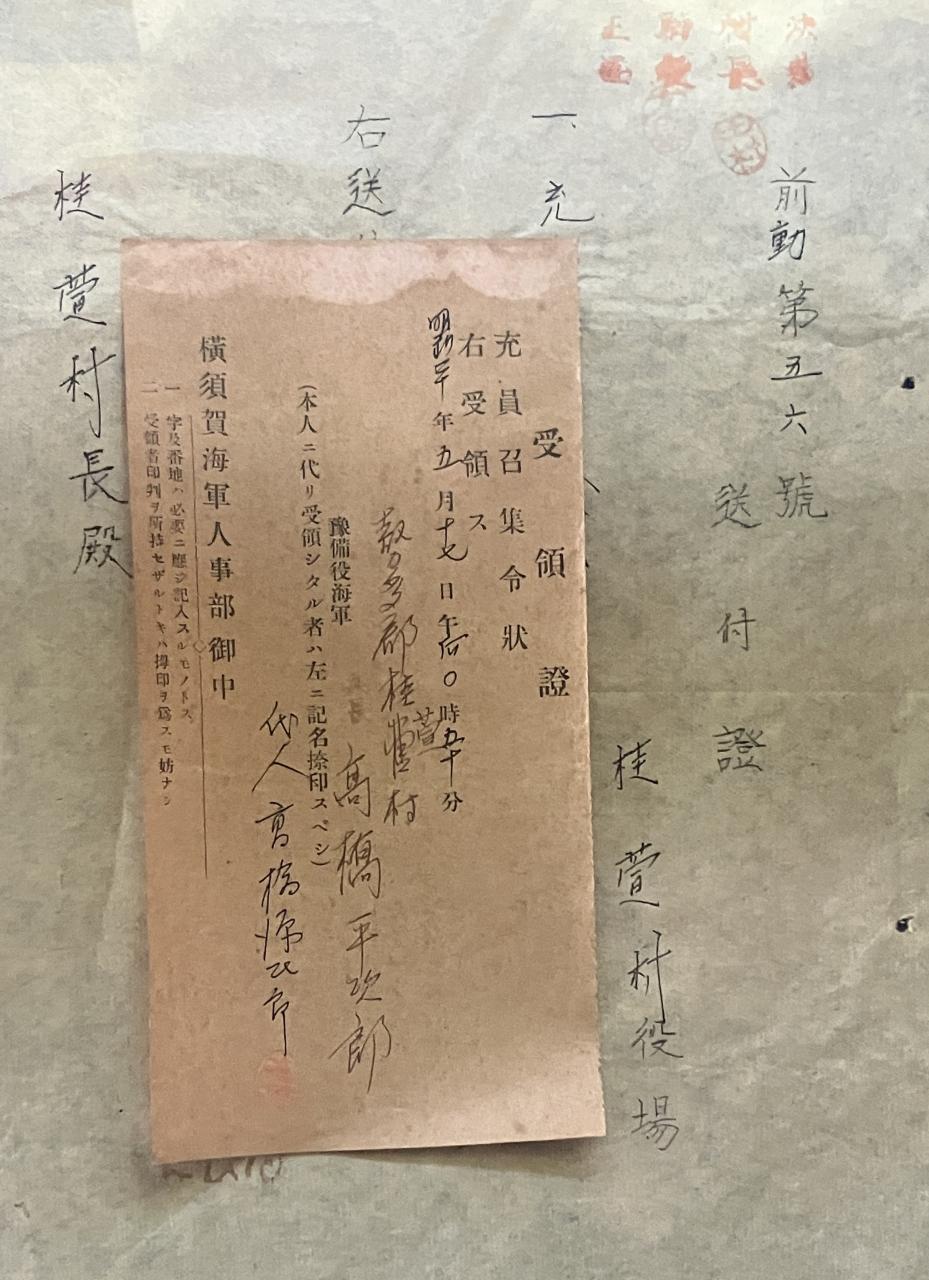 村長
前動第五六號
送付證
桂萱村役場
一、充
右送
受領證
充員召集令狀
右受領ス
年五月十七日午前〇時五十分
勢多郡桂萱村
豫備役海軍 高橋平次郎
(本人ニ代リ受領シタル者ハ左ニ記名捺印スベシ)
代人 高橋
橫須賀海軍人事部御中
一 字及番地ハ必要ニ應ジ記入スルモノトス
二 受領者印判ヲ所持セザルトキハ拇印ヲ爲スモ妨ナシ
桂萱村長殿